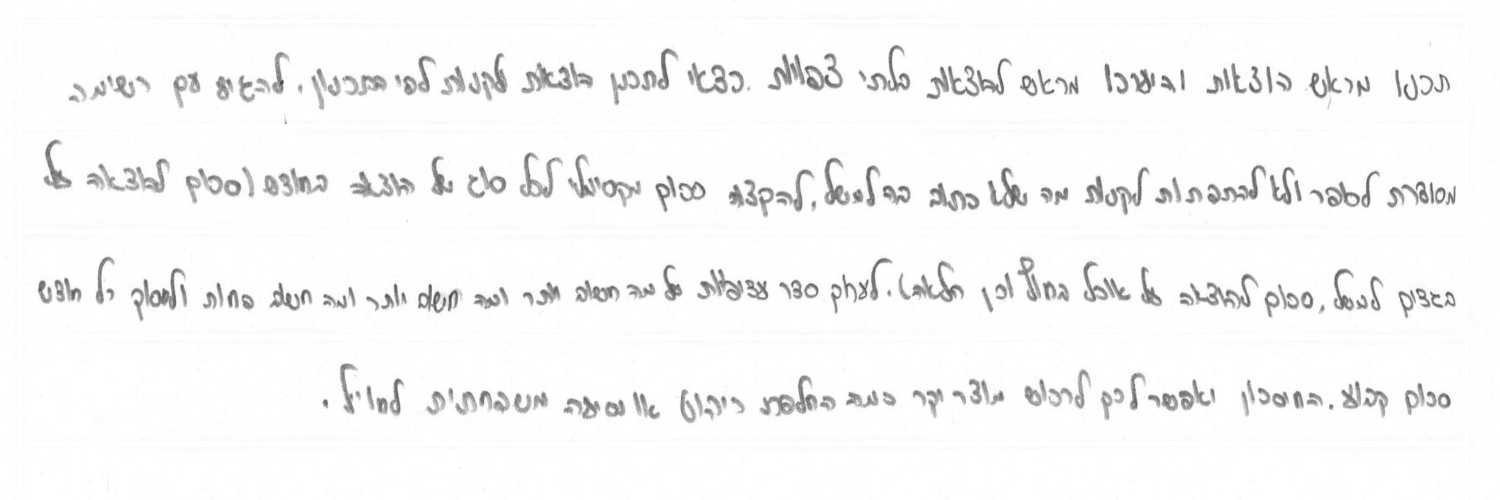 תכננו מראש הוצאות והיערכו מראש להוצאות בלתי צפויות. כדאי לתכנן הוצאות לקנות לפי התכנון, להגיע עם רשימה
מסודרת לסופר ולא להתפתות לקנות מה שלא כתוב בה למשל, להקצות סכום מקסימלי לכל סוג של הוצאה בחודש (סכום להוצאה על
בגדים למשל, סכום להוצאה על אוכל בחוץ וכן הלאה). לערוך סדר עדיפויות על מה חשוב יותר ומה חשוב יותר ומה חשוב פחות ולחסוך כל חודש
סכום קבוע. החיסכון יאפשר לכם לרכוש מוצר יקר כמה החלפת ריהוט או נסיעה משפחתית לחו״ל.